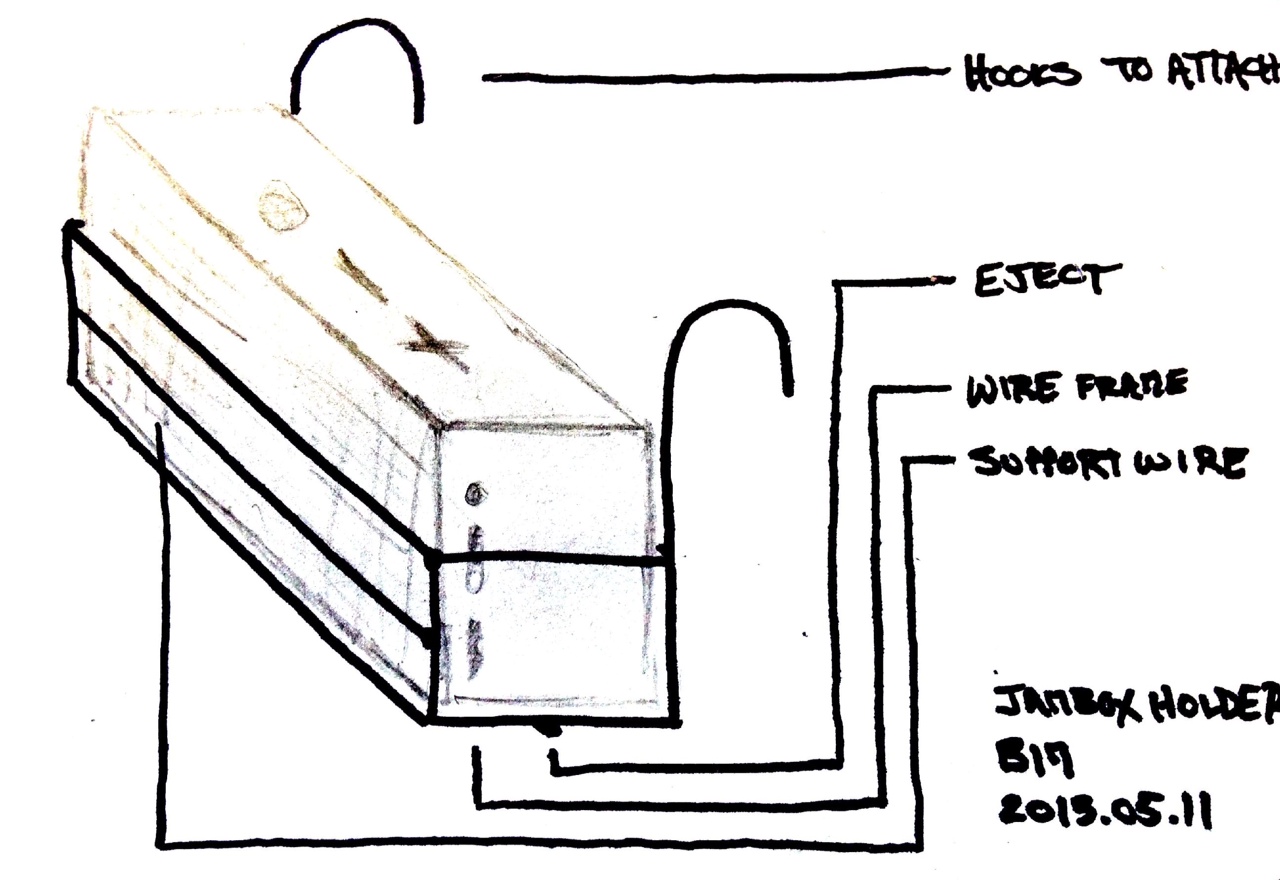 HOOKS TO ATTACH
EJECT
WIRE FRAME
SUPPORT WIRE
JAMBOX HOLDER
2013.05.11